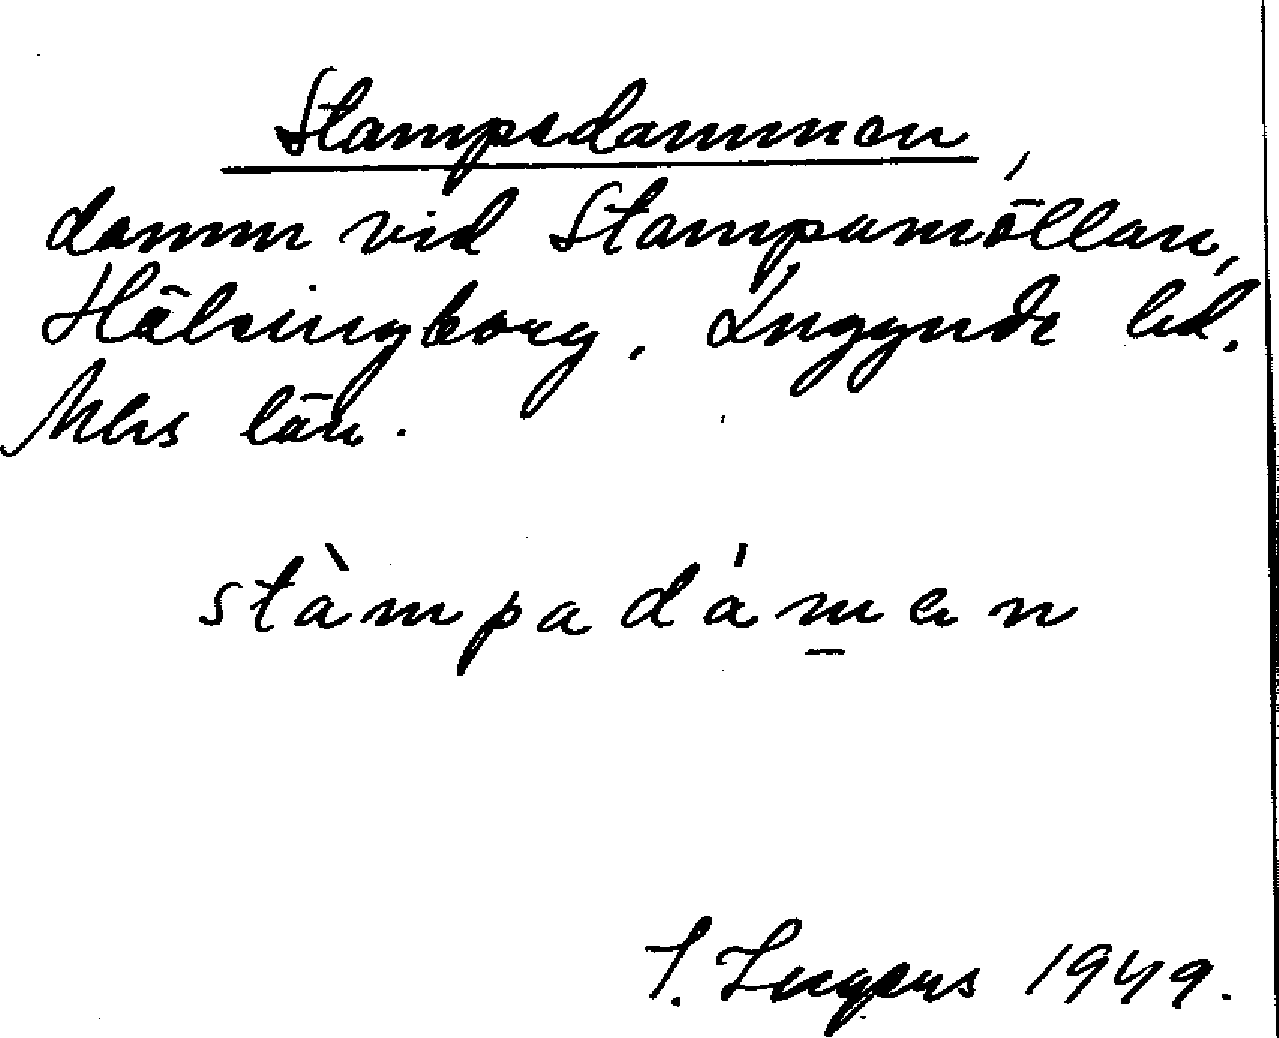 Stampedammen,
damm vid Stampamöllan,
Hälsingborg. Luggude hd.
Mlhs län.
stàmpadámen
I. Ingers 1949.